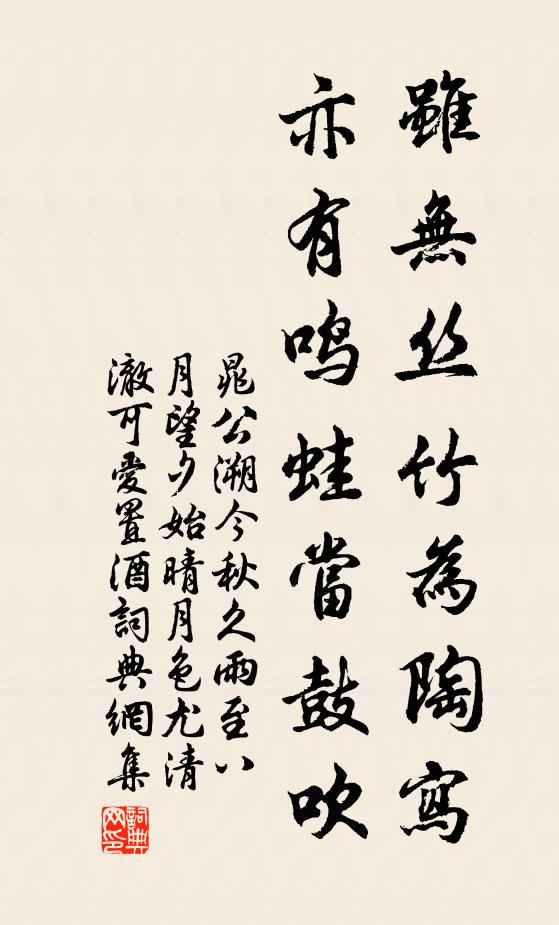 雖無丝竹為陶寫
亦有鸣蛙當鼓吹
晁公溯今秋久雨至八
月望夕始晴月色尤清
澈可愛置酒詞典網集
詞典网印